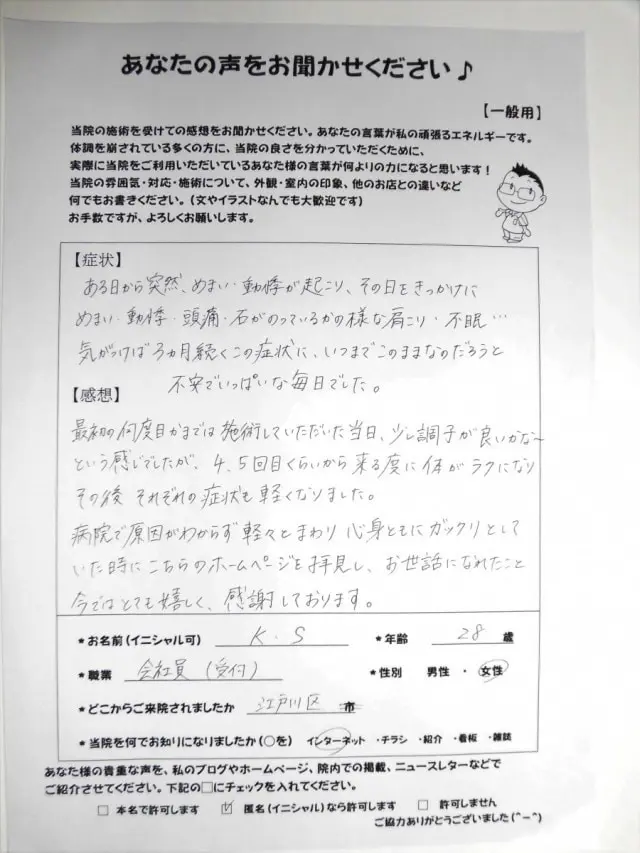 あなたの声をお聞かせください♪
【一般用】
当院の施術を受けての感想をお聞かせください。あなたの言葉が私の頑張るエネルギーです。
体調を崩されている多くの方に、当院の良さを分かっていただくために、
実際に当院をご利用いただいているあなた様の言葉が何よりの力になると思います！
当院の雰囲気・対応・施術について、外観・室内の印象、他のお店との違いなど
何でもお書きください。（文やイラストなんでも大歓迎です）
お手数ですが、よろしくお願いします。
【症状】
ある日から突然、めまい・動悸が起こり、その日をきっかけに
めまい・動悸・頭痛・石がのっているかの様な肩こり・不眠…
気がつけば3ヵ月続くこの症状に、いつまでこのままなのだろうと
不安でいっぱいな毎日でした。
【感想】
最初の何度目かまでは施術していただいた当日、少し調子が良いかな〜
という感じでしたが、4、5回目くらいから来る度に体がラクになり
その後 それぞれの症状も軽くなりました。
病院で原因がわからず軽々とまわり 心身ともにガックリとして
いた時にこちらのホームページを拝見し、お世話になれたこと
今ではとても嬉しく、感謝しております。
*お名前（イニシャル可） K.S *年齢 28 歳
*職業 会社員（受付） *性別 男性 ・ 女性
*どこからご来院されましたか 江戸川区 市
*当院を何でお知りになりましたか（○を） インターネット ・チラシ ・紹介 ・看板 ・雑誌
あなた様の貴重な声を、私のブログやホームページ、院内での掲載、ニュースレターなどで
ご紹介させてください。下記の□にチェックを入れてください。
□ 本名で許可します ☑ 匿名（イニシャル）なら許可します □ 許可しません
ご協力ありがとうございました(^-^)